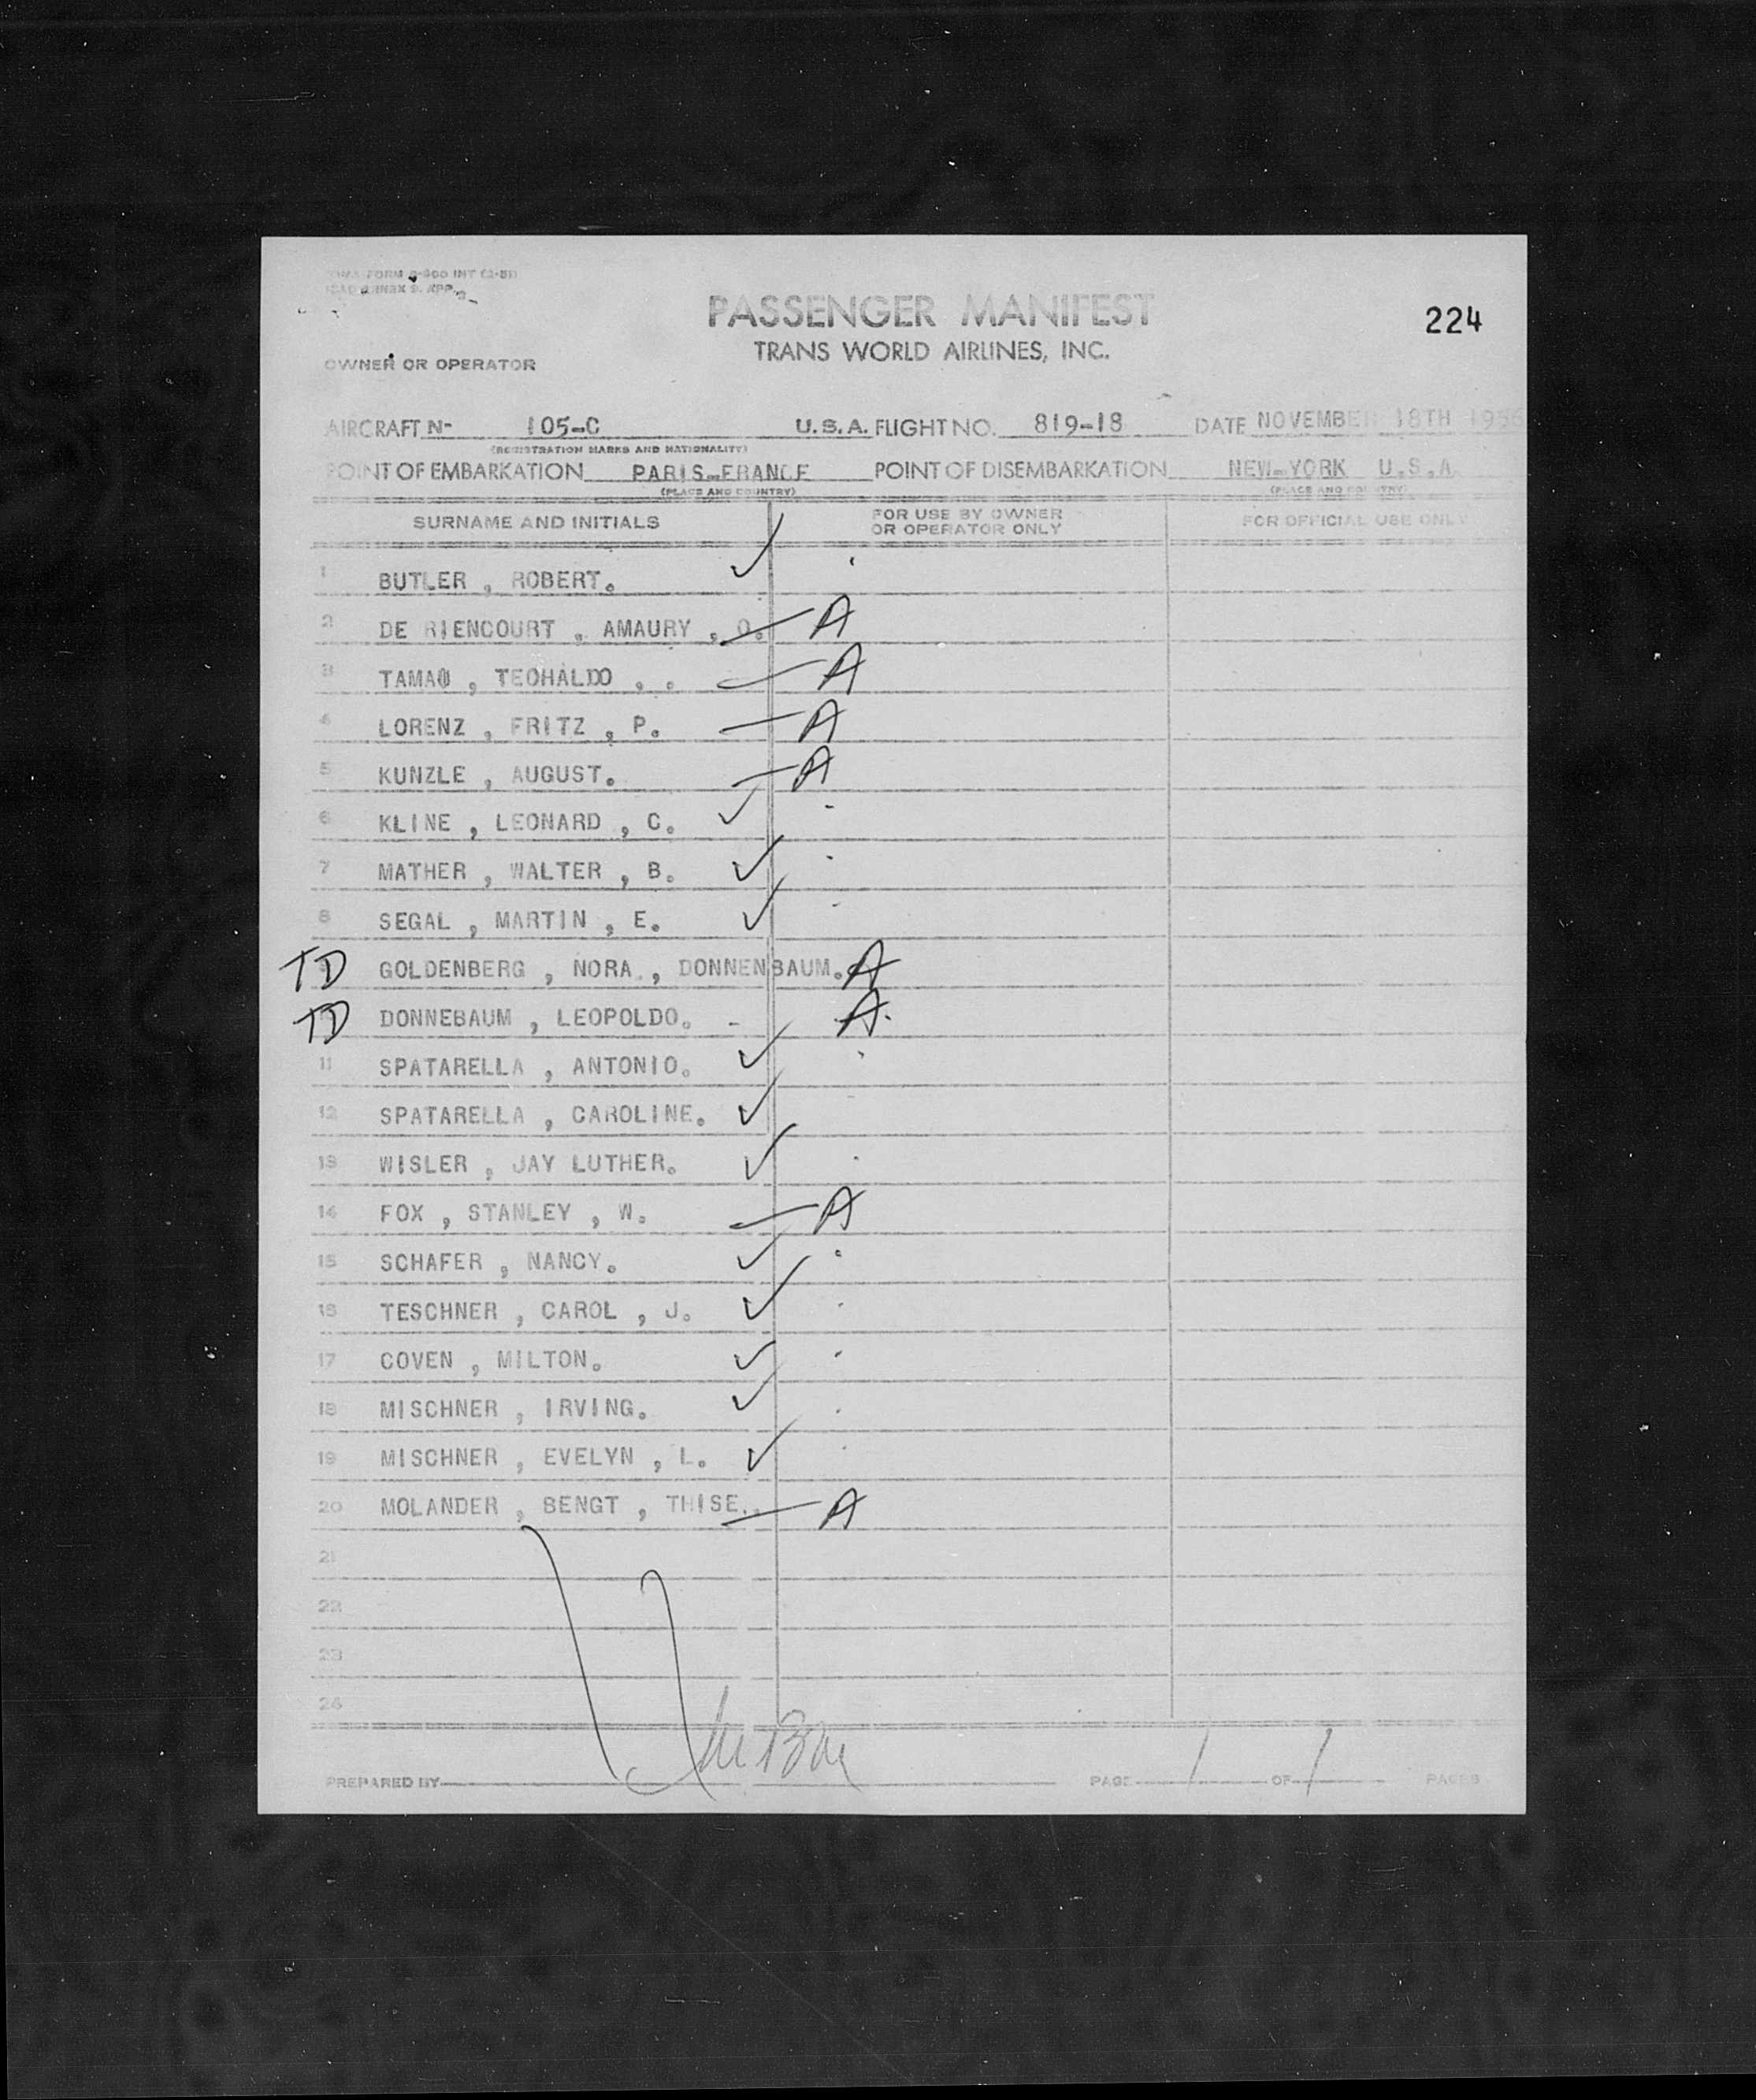 TWA FORM INT
ICAO ANNEX 9, APP.
PASSENGER MANIFEST
224
TRANS WORLD AIRLINES, INC.
OWNER OR OPERATOR
AIRCRAFT N- 105-C U.S.A. FLIGHT NO. 819-18 DATE NOVEMBER 18TH 1956
(REGISTRATION MARKS AND NATIONALITY)
POINT OF EMBARKATION PARIS-FRANCE POINT OF DISEMBARKATION NEW-YORK U.S.A.
(PLACE AND COUNTRY) (PLACE AND COUNTRY)
SURNAME AND INITIALS FOR USE BY OWNER OR OPERATOR ONLY FOR OFFICIAL USE ONLY
1 BUTLER , ROBERT. ✓
2 DE RIENCOURT , AMAURY , O. — A
3 TAMAO , TEOHALDO , . — A
4 LORENZ , FRITZ , P. — A
5 KUNZLE , AUGUST. — A
6 KLINE , LEONARD , C. ✓
7 MATHER , WALTER , B. ✓
8 SEGAL , MARTIN , E. ✓
TD GOLDENBERG , NORA , DONNENBAUM. A
TD DONNEBAUM , LEOPOLDO. - A.
11 SPATARELLA , ANTONIO. ✓
12 SPATARELLA , CAROLINE. ✓
13 WISLER , JAY LUTHER. ✓
14 FOX , STANLEY , W. — A
15 SCHAFER , NANCY. ✓
16 TESCHNER , CAROL , J. ✓
17 COVEN , MILTON. ✓
18 MISCHNER , IRVING. ✓
19 MISCHNER , EVELYN , L. ✓
20 MOLANDER , BENGT , THISE. — A
21
22
23
24
PREPARED BY PAGE 1 OF 1 PAGES